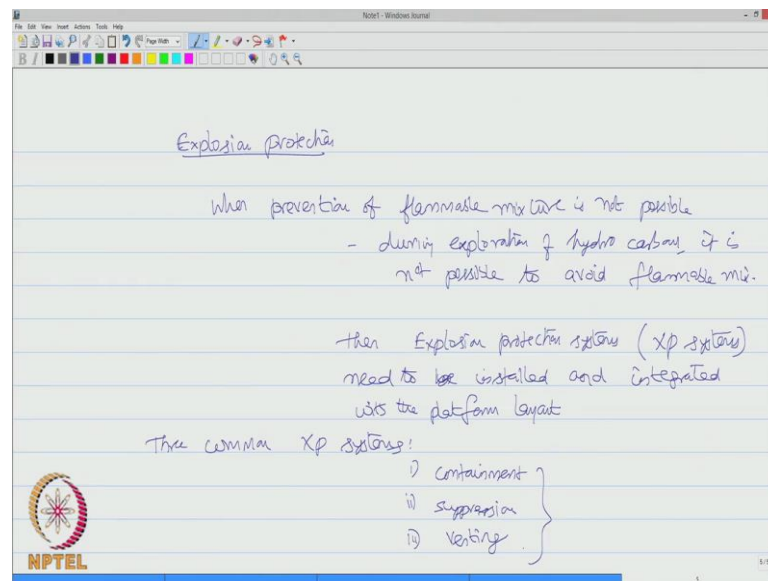 Note1 - Windows Journal
File Edit View Insert Actions Tools Help
Page Width
B I
Explosion protection
When prevention of flammable mixture is not possible
- during exploration of hydro carbons, it is
not possible to avoid flammable mix.
then Explosion protection systems (XP systems)
need to be installed and integrated
with the platform layout
Three common XP systems:
i) containment
ii) suppression
iii) venting
NPTEL
5/5